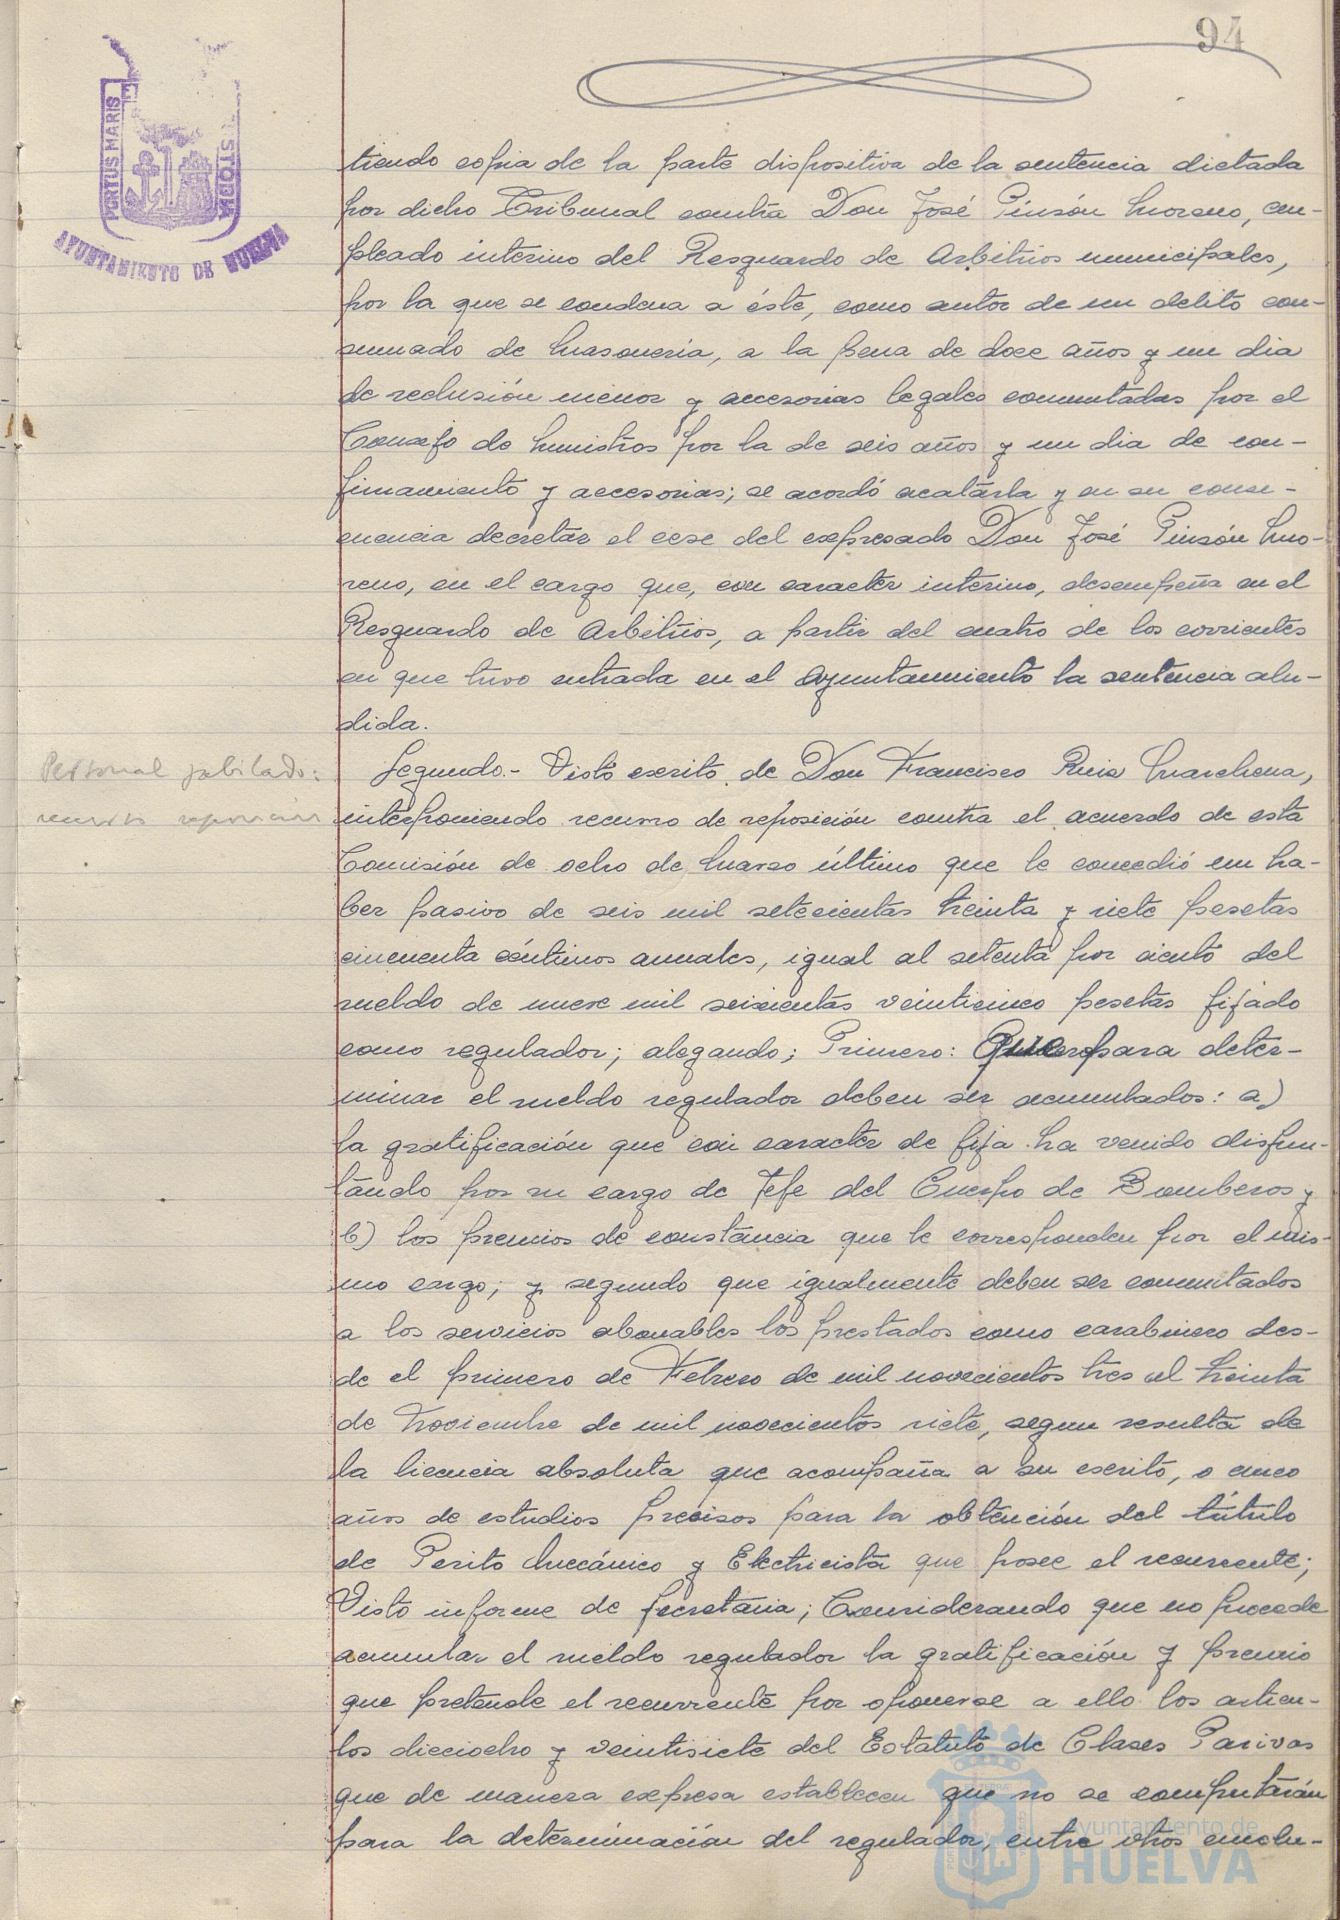 94
PORTUS MARIS
AYUNTAMIENTO DE HUELVA
tiendo copia de la parte dispositiva de la sentencia dictada
por dicho Tribunal contra Don José Pinzón Moreno, em-
pleado interino del Resguardo de Arbitrios municipales,
por la que se condena a éste, como autor de un delito con-
sumado de Masonería, a la pena de doce años y un dia
de reclusión menor y accesorias legales conmutadas por el
Consejo de Ministros por la de seis años y un dia de con-
finamiento y accesorias; se acordó acatarla y en su conse-
cuencia decretar el cese del expresado Don José Pinzón Mo-
reno, en el cargo que, con caracter interino, desempeña en el
Resguardo de Arbitrios, a partir del cuatro de los corrientes
en que tuvo entrada en el Ayuntamiento la sentencia alu-
dida.
Personal jubilado:
recurso reposición
Segundo.- Visto escrito de Don Francisco Ruiz Marchena,
interponiendo recurso de reposición contra el acuerdo de esta
Comisión de ocho de Marzo último que le concedió un ha-
ber pasivo de seis mil setecientas treinta y siete pesetas
cincuenta céntimos anuales, igual al setenta por ciento del
sueldo de nueve mil seiscientas veinticinco pesetas fijado
como regulador; alegando; Primero: Que para deter-
minar el sueldo regulador deben ser acumulados: a)
la gratificación que con caracter de fija ha venido disfru-
tando por su cargo de Jefe del Cuerpo de Bomberos y
b) los premios de constancia que le corresponden por el mis-
mo cargo; y segundo que igualmente deben ser computados
a los servicios abonables los prestados como carabinero des-
de el primero de Febrero de mil novecientos tres al treinta
de Noviembre de mil novecientos siete, segun resulta de
la licencia absoluta que acompaña a su escrito, o cinco
años de estudios precisos para la obtención del título
de Perito Mecánico y Electricista que posee el recurrente;
Visto informe de Secretaria; Considerando que no procede
acumular el sueldo regulador la gratificación y premio
que pretende el recurrente por oponerse a ello los articu-
los dieciocho y veintisiete del Estatuto de Clases Pasivas
que de manera expresa establecen que no se computarán
para la determinación del regulador, entre otros emolu-
Ayuntamiento de
HUELVA